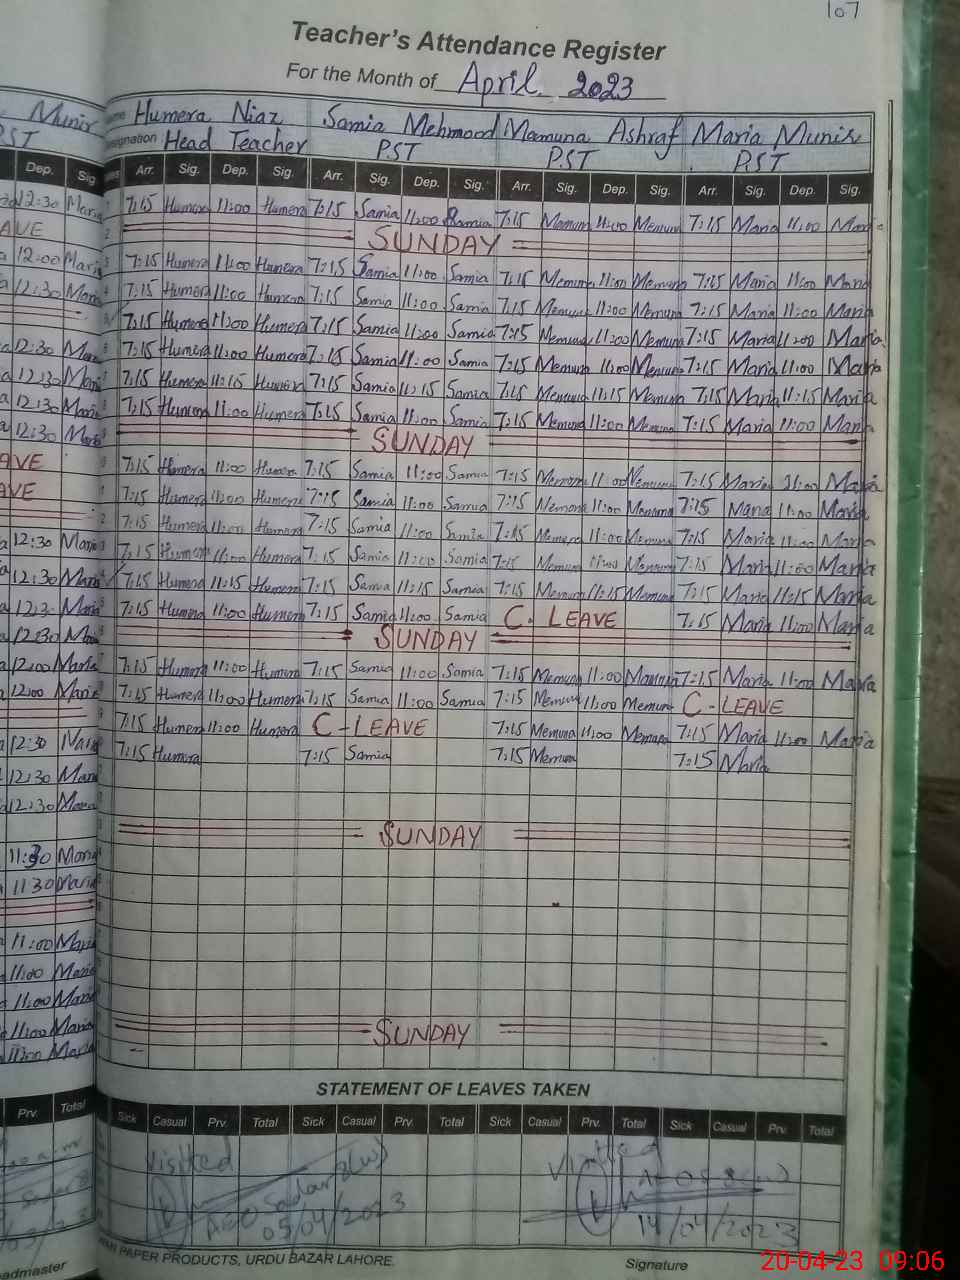 107
Teacher's Attendance Register
For the Month of April 2023
Munir Humera Niaz Samia Mehmood Memuna Ashraf Maria Munir
PST Head Teacher PST PST PST
Dep. Sig. Arr. Sig. Dep. Sig. Arr. Sig. Dep. Sig. Arr. Sig. Dep. Sig. Arr. Sig. Dep. Sig.
12:30 Maria 7:15 Humera 11:00 Humera 7:15 Samia 11:00 Samia 7:15 Memuna 11:00 Memuna 7:15 Maria 11:00 Maria
SUNDAY
12:00 Maria 7:15 Humera 11:00 Humera 7:15 Samia 11:00 Samia 7:15 Memuna 11:00 Memuna 7:15 Maria 11:00 Maria
12:30 Maria 7:15 Humera 11:00 Humera 7:15 Samia 11:00 Samia 7:15 Memuna 11:00 Memuna 7:15 Maria 11:00 Maria
7:15 Humera 11:00 Humera 7:15 Samia 11:00 Samia 7:15 Memuna 11:00 Memuna 7:15 Maria 11:00 Maria
12:30 Maria 7:15 Humera 11:00 Humera 7:15 Samia 11:00 Samia 7:15 Memuna 11:00 Memuna 7:15 Maria 11:00 Maria
12:30 Maria 7:15 Humera 11:15 Humera 7:15 Samia 11:15 Samia 7:15 Memuna 11:15 Memuna 7:15 Maria 11:15 Maria
12:30 Maria 7:15 Humera 11:00 Humera 7:15 Samia 11:00 Samia 7:15 Memuna 11:00 Memuna 7:15 Maria 11:00 Maria
12:30 Maria SUNDAY
7:15 Humera 11:00 Humera 7:15 Samia 11:00 Samia 7:15 Memuna 11:00 Memuna 7:15 Maria 11:00 Maria
7:15 Humera 11:00 Humera 7:15 Samia 11:00 Samia 7:15 Memuna 11:00 Memuna 7:15 Maria 11:00 Maria
7:15 Humera 11:00 Humera 7:15 Samia 11:00 Samia 7:15 Memuna 11:00 Memuna 7:15 Maria 11:00 Maria
12:30 Maria 7:15 Humera 11:00 Humera 7:15 Samia 11:00 Samia 7:15 Memuna 11:00 Memuna 7:15 Maria 11:00 Maria
12:30 Maria 7:15 Humera 11:15 Humera 7:15 Samia 11:15 Samia 7:15 Memuna 11:15 Memuna 7:15 Maria 11:15 Maria
12:30 Maria 7:15 Humera 11:00 Humera 7:15 Samia 11:00 Samia C. LEAVE 7:15 Maria 11:00 Maria
12:30 Maria SUNDAY
12:00 Maria 7:15 Humera 11:00 Humera 7:15 Samia 11:00 Samia 7:15 Memuna 11:00 Memuna 7:15 Maria 11:00 Maria
12:00 Maria 7:15 Humera 11:00 Humera 7:15 Samia 11:00 Samia 7:15 Memuna 11:00 Memuna C.-LEAVE
7:15 Humera 11:00 Humera C-LEAVE 7:15 Memuna 11:00 Memuna 7:15 Maria 11:00 Maria
12:30 Maria 7:15 Humera 7:15 Samia 7:15 Memuna 7:15 Maria
12:30 Maria
12:30 Maria
SUNDAY
11:30 Maria
11:30 Maria
11:00 Maria
11:00 Maria
11:00 Maria
11:00 Maria SUNDAY
11:00 Maria
STATEMENT OF LEAVES TAKEN
Prv. Total Sick Casual Prv. Total Sick Casual Prv. Total Sick Casual Prv. Total Sick Casual Prv. Total
Visited Visited
AEO Sadar 8(w)
05/04/2023 14/04/2023
PAPER PRODUCTS, URDU BAZAR LAHORE.
Signature
20-04-23 09:06